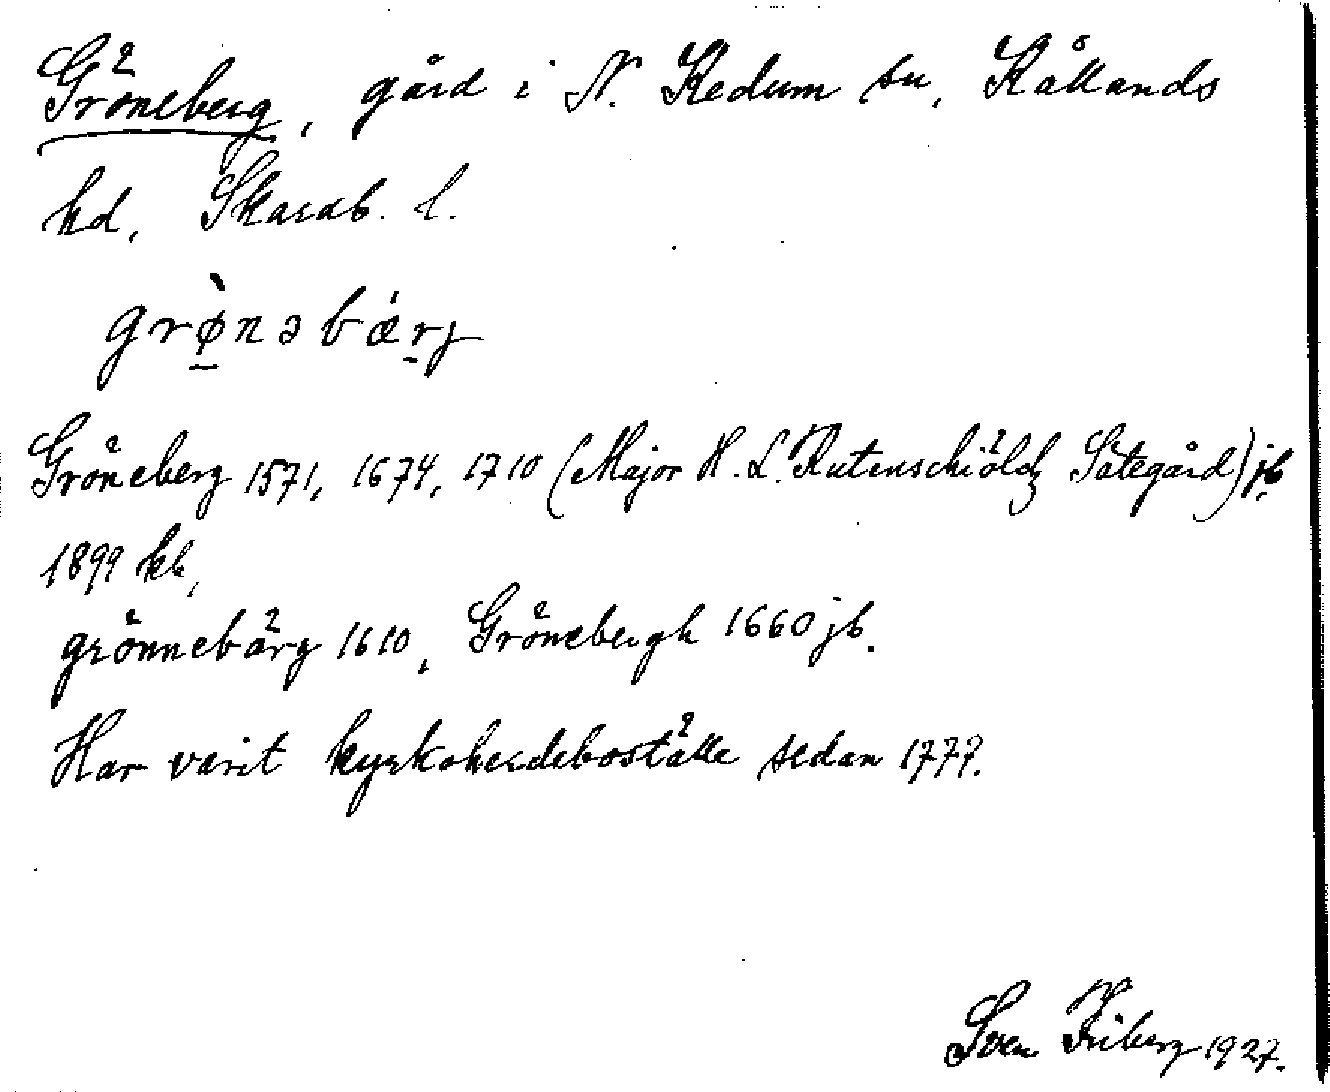 Gröneberg, gård i N. Kedum sn, Kållands
hd, Skarab. l.
grø̀nəbǽrj
Gröneberg 1571, 1674, 1710 (Major H. L. Rutenschiöldz Sätegård) jb
1899 kb,
grönnebärg 1610, Grönebergh 1660 jb.
Har varit kyrkoherdeboställe sedan 1779.
Sven Friberg 1927.